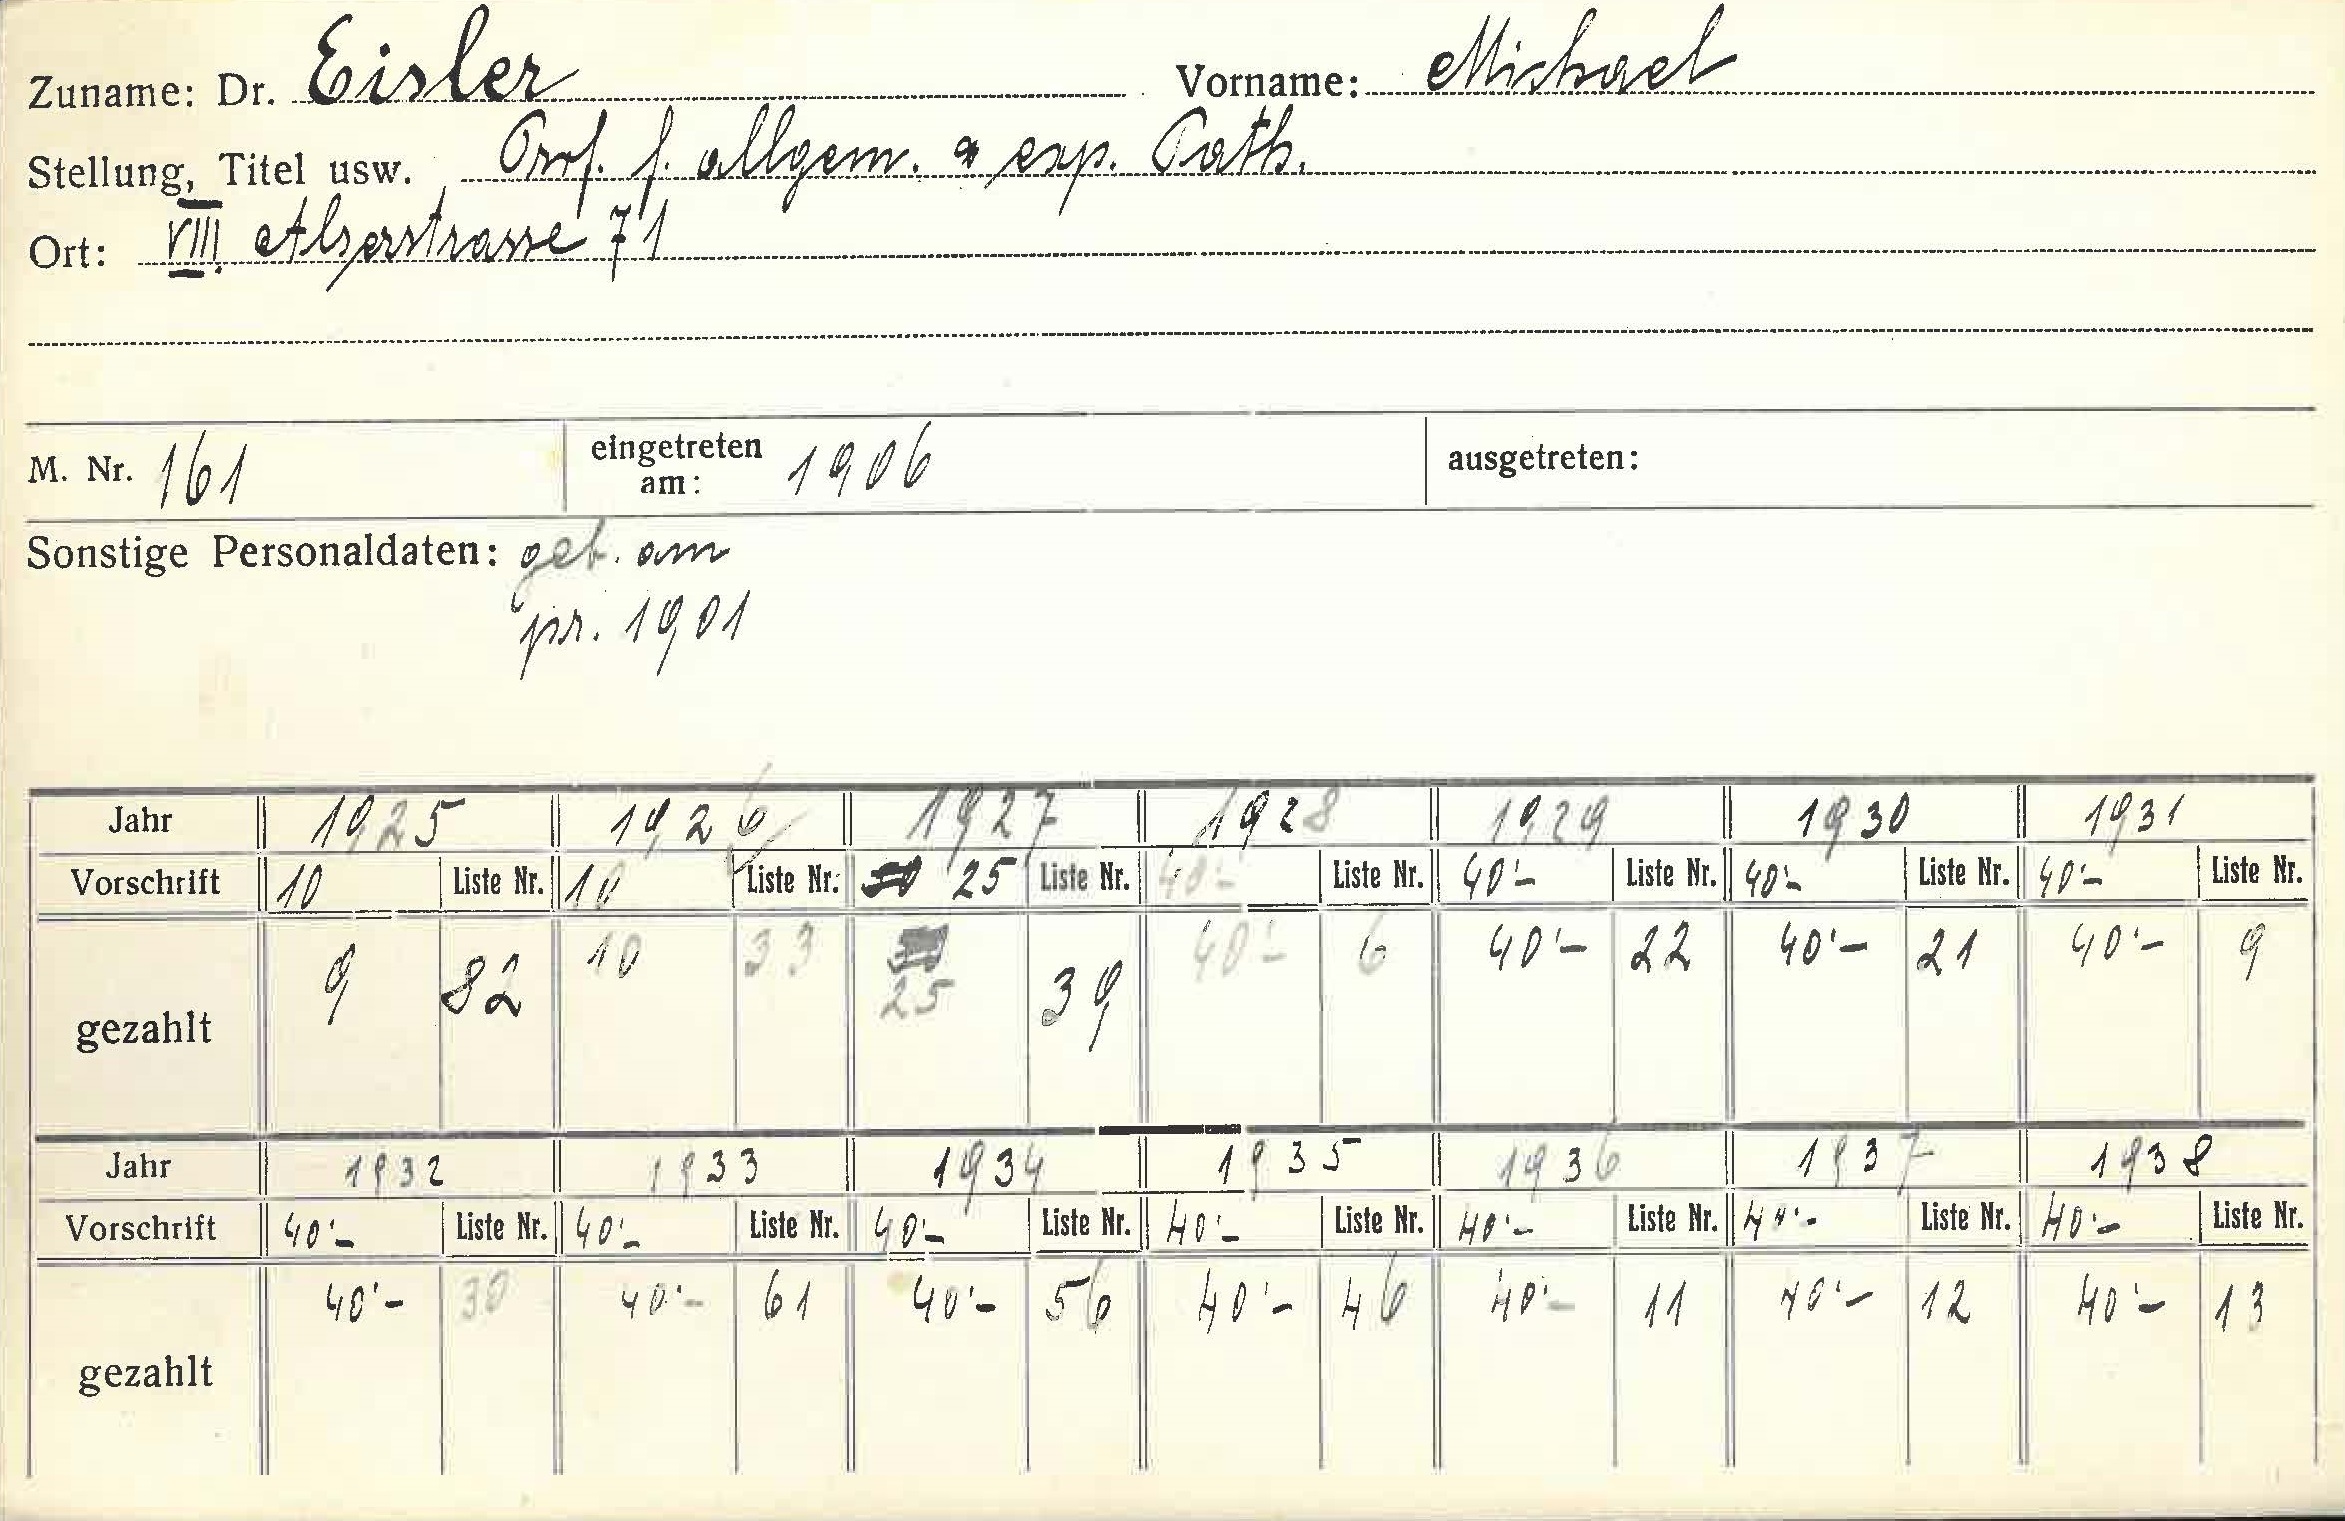 Zuname: Dr. Eisler Vorname: Michael
Stellung, Titel usw. Prof. f. allgem. u exp. Path.
Ort: VIII. Alserstrasse 71
M. Nr. 161 eingetreten am: 1906 ausgetreten:
Sonstige Personaldaten: geb. am
pr. 1901
Jahr 1925 1926 1927 1928 1929 1930 1931
Vorschrift 10 Liste Nr. 10 Liste Nr. 25 Liste Nr. 40'- Liste Nr. 40'- Liste Nr. 40'- Liste Nr. 40'- Liste Nr.
gezahlt 9 82 10 33 25 39 40'- 6 40'- 22 40'- 21 40'- 9
Jahr 1932 1933 1934 1935 1936 1937 1938
Vorschrift 40'- Liste Nr. 40'- Liste Nr. 40'- Liste Nr. 40'- Liste Nr. 40'- Liste Nr. 40'- Liste Nr. 40'- Liste Nr.
gezahlt 40'- 30 40'- 61 40'- 56 40'- 46 40'- 11 40'- 12 40'- 13